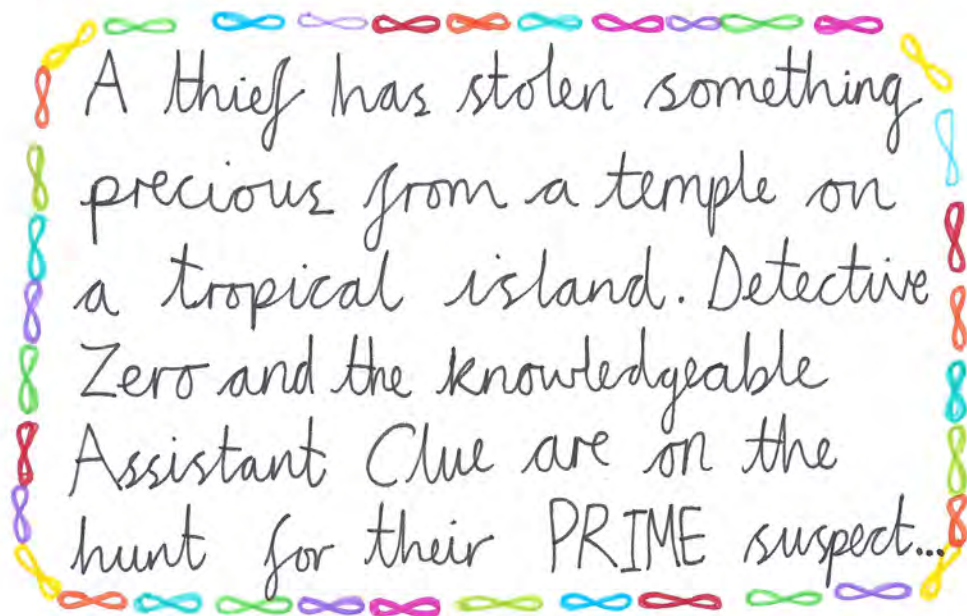 A thief has stolen something
precious from a temple on
a tropical island. Detective
Zero and the knowledgeable
Assistant Clue are on the
hunt for their PRIME suspect...